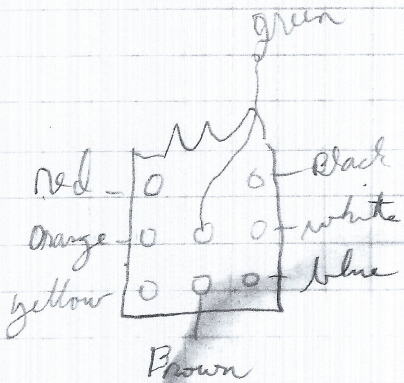 green
red
Black
orange
white
yellow
blue
Brown